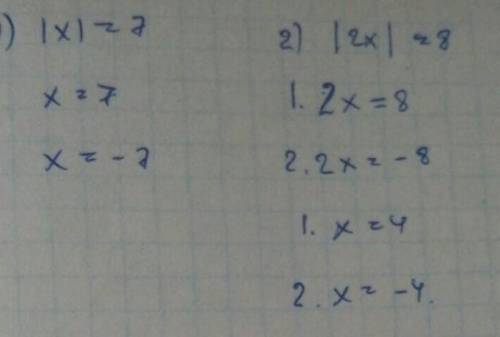 1) |x| = 7
x = 7
x = -7
2) |2x| = 8
1. 2x = 8
2. 2x = -8
1. x = 4
2. x = -4.